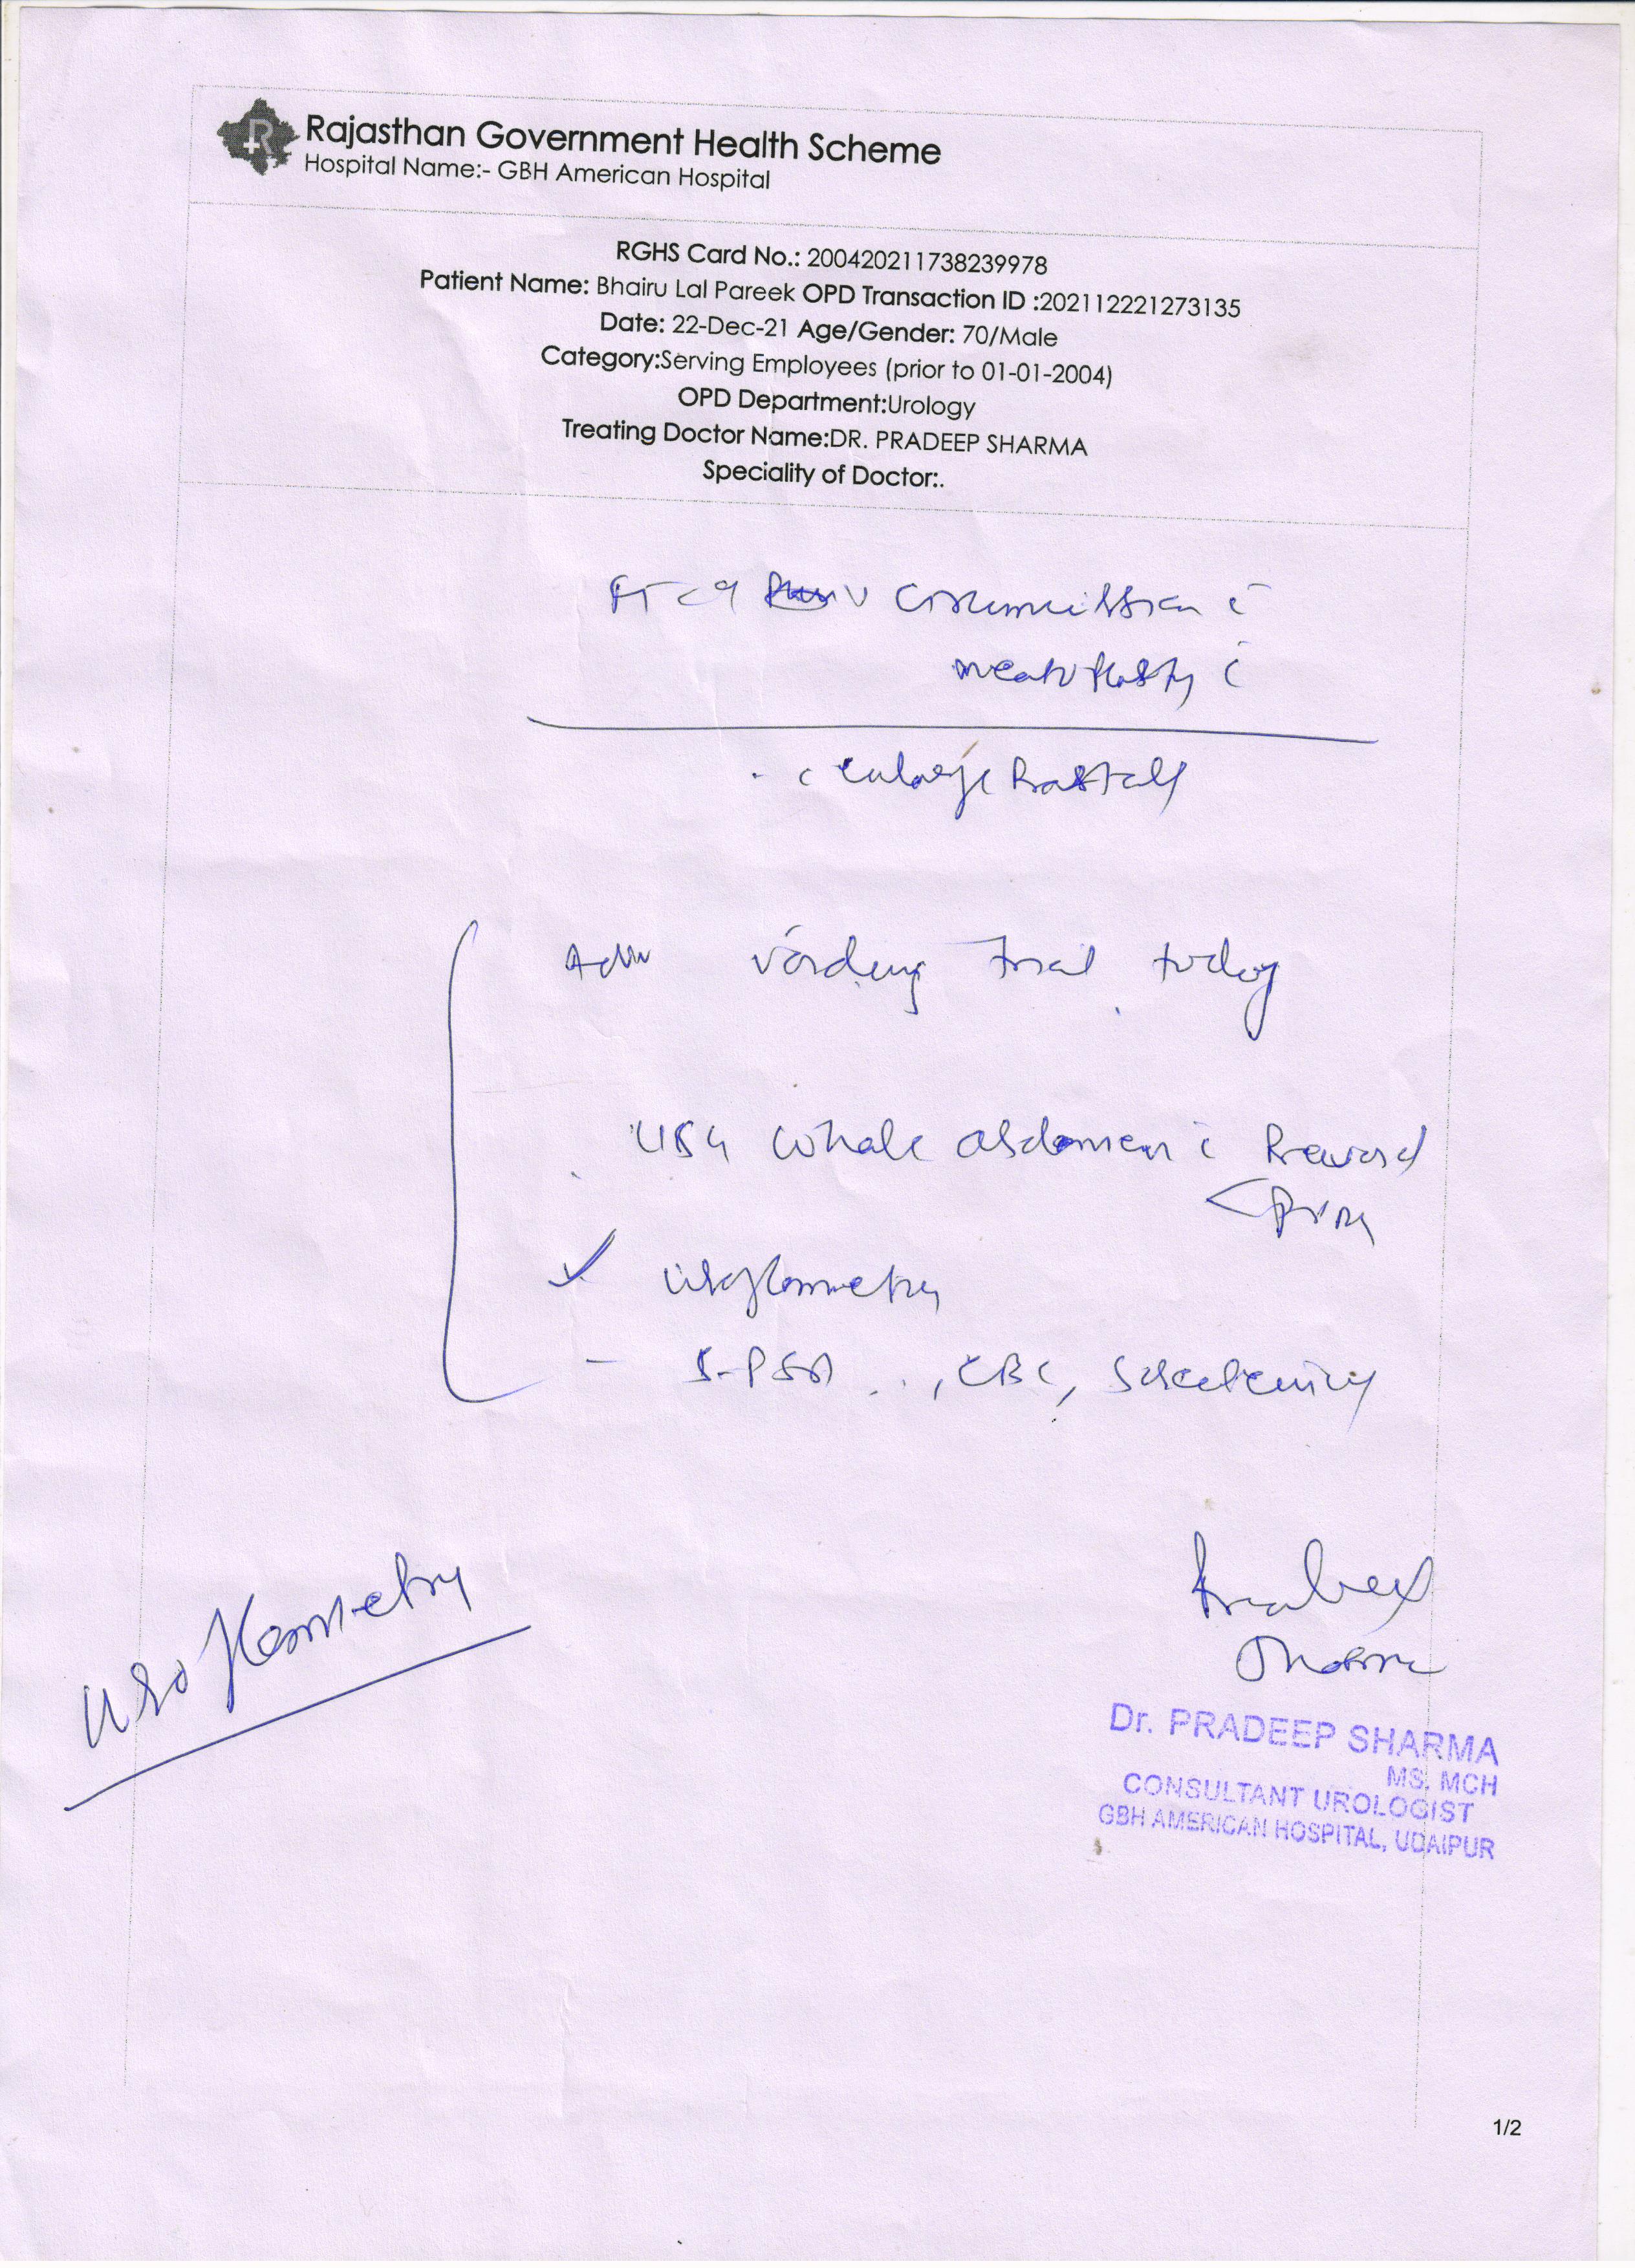 Rajasthan Government Health Scheme
Hospital Name:- GBH American Hospital
RGHS Card No.: 200420211738239978
Patient Name: Bhairu Lal Pareek OPD Transaction ID :202112221273135
Date: 22-Dec-21 Age/Gender: 70/Male
Category:Serving Employees (prior to 01-01-2004)
OPD Department:Urology
Treating Doctor Name:DR. PRADEEP SHARMA
Speciality of Doctor:.
circumcission c̄
meatoplasty c̄
c enlarge Prostate
Adv voiding trial today
USG whole abdomen c̄ Prevoid
< PVR
✓ Uroflometry
- S-PSA .., CBC, Screening
Uroflometry
Pradeep
Sharma
Dr. PRADEEP SHARMA
MS, MCH
CONSULTANT UROLOGIST
GBH AMERICAN HOSPITAL, UDAIPUR
1/2